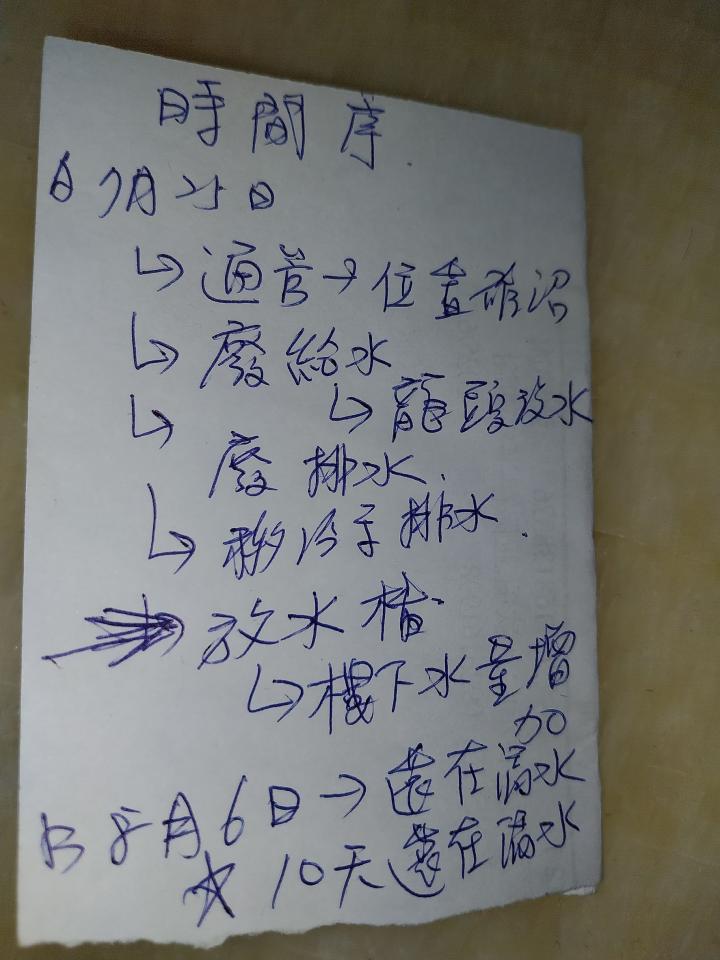 時間序.
A 7月25日
↳ 通管→位置確認
↳ 廢給水
↳ 龍頭放水
↳ 廢排水.
↳ 移冷手排水.
放水槽
↳樓下水量增加
B 8月6日→還在滴水
☆ 10天還在滴水